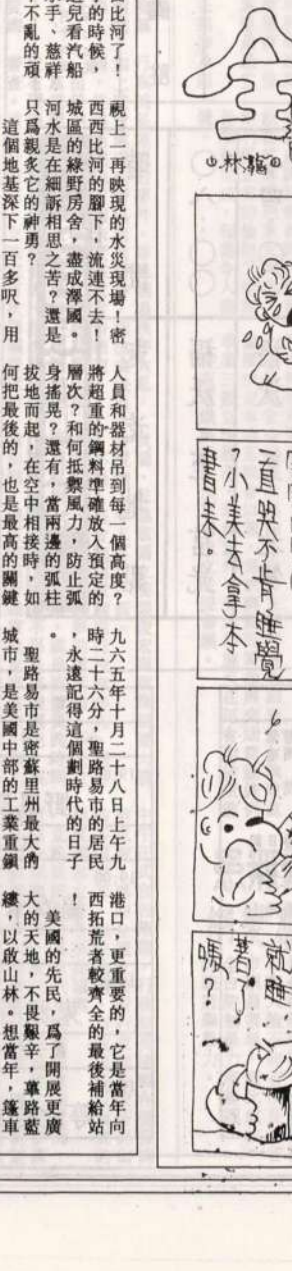 比河了！
的時候，
兒看汽船
手、慈祥
不亂的頑
視上一再映現的水災現場！密
西西比河的腳下，流連不去！
城區的綠野房舍，盡成澤國。
河水是在細訴相思之苦？還是
只爲親炙它的神勇？
這個地基深下一百多呎，用
人員和器材吊到每一個高度？
將超重的鋼料準確放入預定的
層次？和何抵禦風力，防止弧
身搖晃？還有，當兩邊的弧柱
拔地而起，在空中相接時，如
何把最後的，也是最高的關鍵
九六五年十月二十八日上午九
時二十六分，聖路易市的居民
，永遠記得這個劃時代的日子
。
聖路易市是密蘇里州最大的
城市，是美國中部的工業重鎭
港口，更重要的，它是當年向
西拓荒者較齊全的最後補給站
！
美國的先民，爲了開展更廣
大的天地，不畏艱辛，蓽路藍
縷，以啟山林。想當年，篷車
全
林
一直哭不肯睡覺
？小美去拿本
書來。
就睡
著了
嗎？